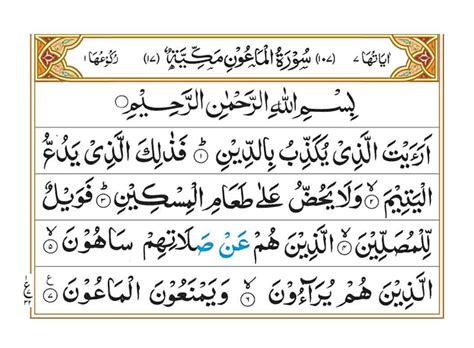 اٰيَاتُهَا ٧ (١٠٧) سُوْرَةُ الْمَاعُوْنِ مَكِّيَّةٌ (١٧) رُكُوْعُهَا ١
بِسْمِ اللهِ الرَّحْمٰنِ الرَّحِيْمِ
اَرَءَيْتَ الَّذِىْ يُكَذِّبُ بِالدِّيْنِ ؕ۝١ فَذٰلِكَ الَّذِىْ يَدُعُّ
الْيَتِيْمَ ۙ۝٢ وَلَا يَحُضُّ عَلٰى طَعَامِ الْمِسْكِيْنِ ؕ۝٣ فَوَيْلٌ
لِّلْمُصَلِّيْنَ ۙ۝٤ الَّذِيْنَ هُمْ عَنْ صَلَاتِهِمْ سَاهُوْنَ ۙ۝٥
الَّذِيْنَ هُمْ يُرَآءُوْنَ ۙ۝٦ وَيَمْنَعُوْنَ الْمَاعُوْنَ ۝٧ ع